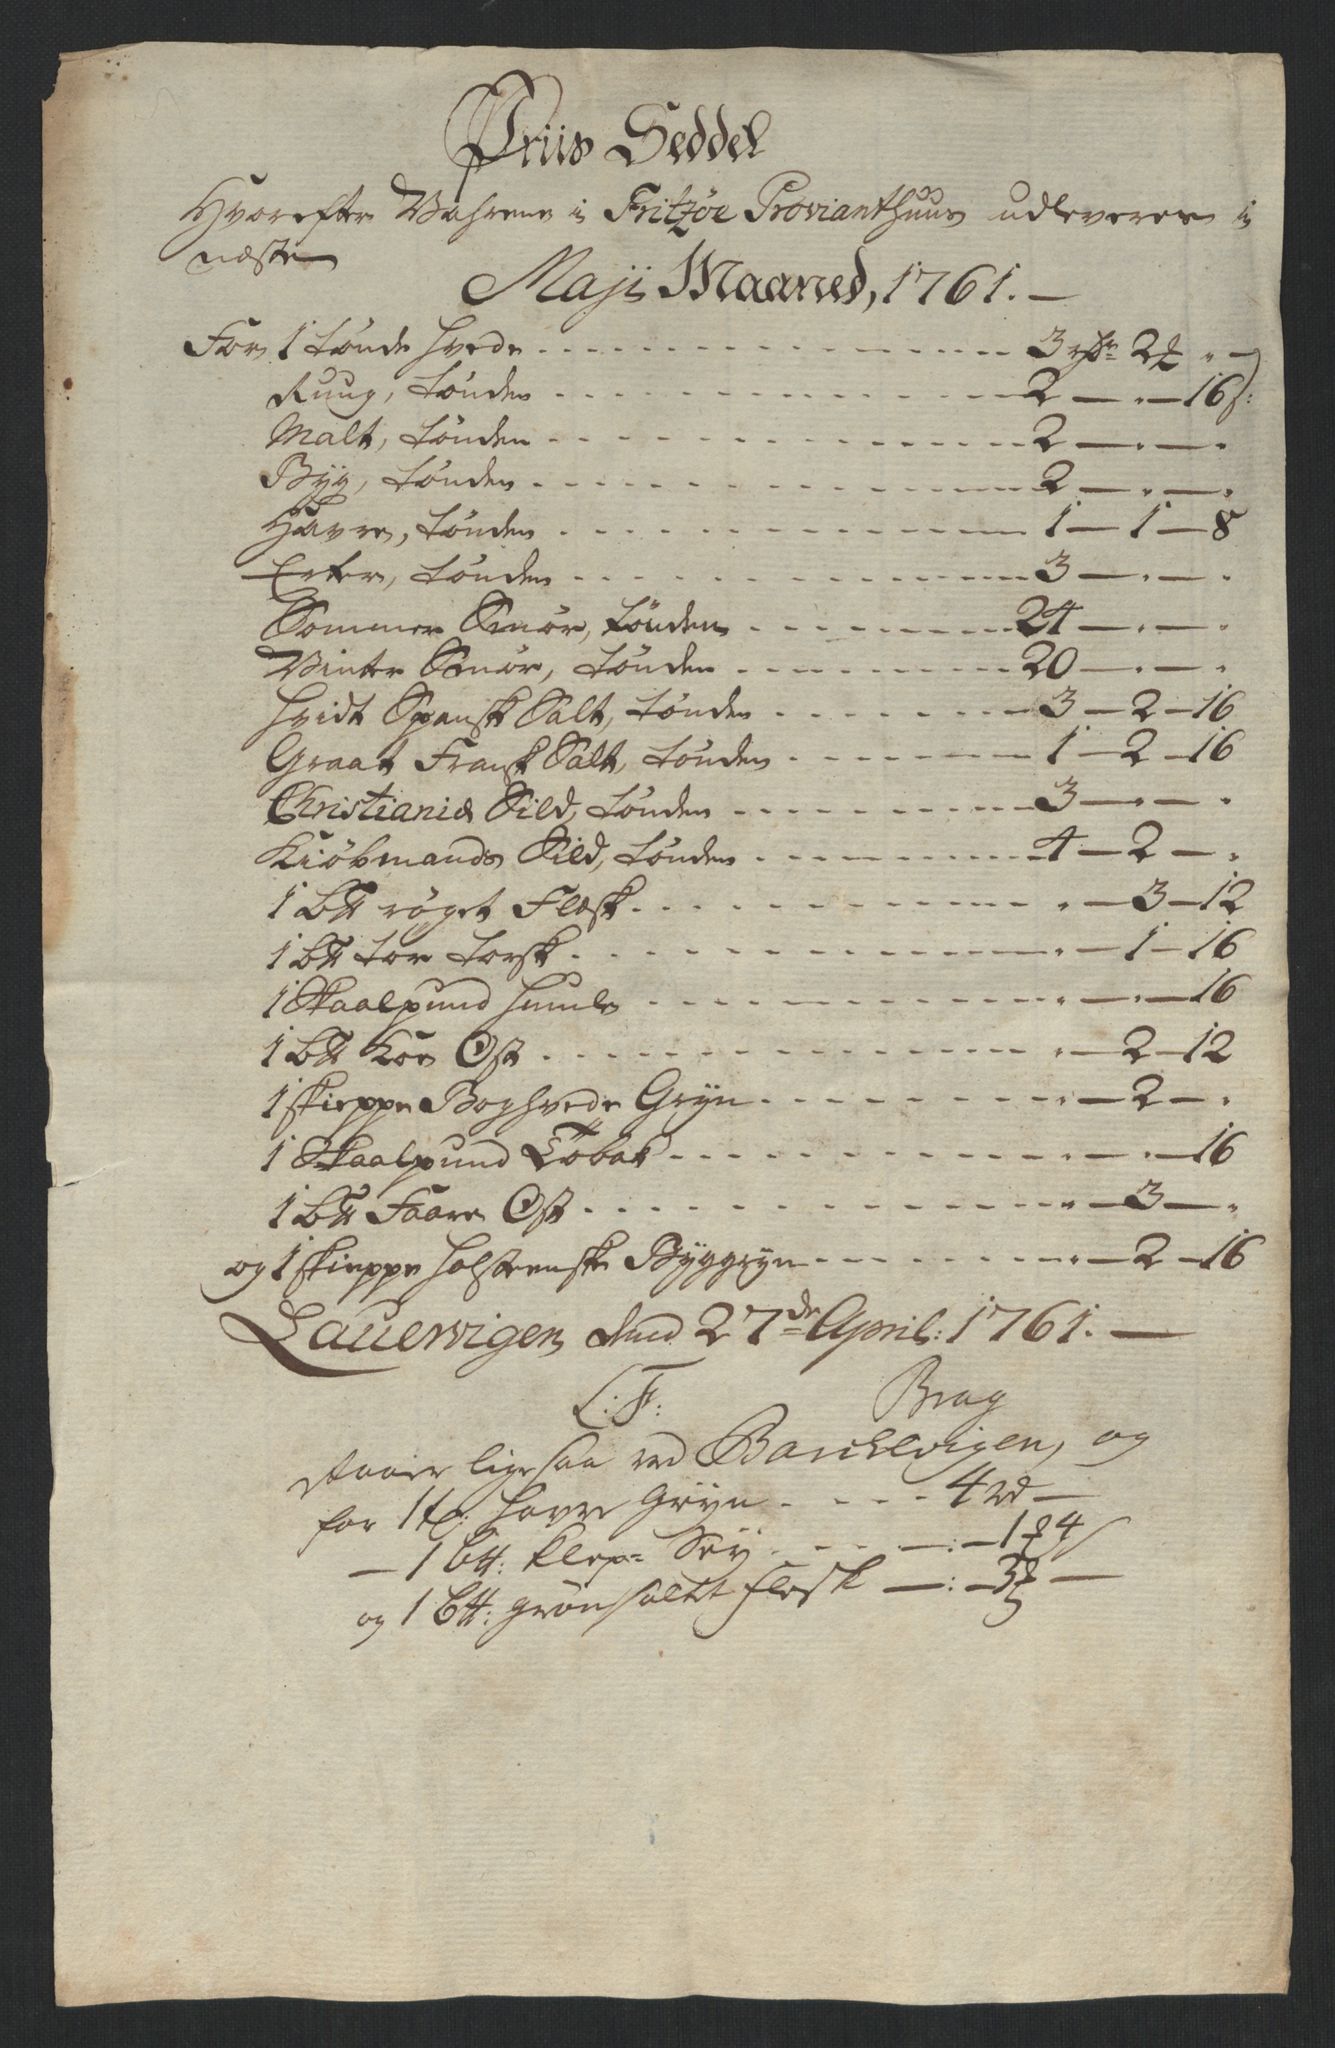 Priis Seddel
Hvorefter Wahrene i Fritzøe Provianthuus udleveres i
næste
Maji Maaned, 1761. —
For 1 tønde Hvede . . . . 3 rdr 2 ₰ " —
Ruug, tønden . . . . 2 — " — 16 s:
Malt, tønden . . . . 2 — " — "
Byg, tønden . . . . 2 — " — "
Havre, tønden . . . . 1 — 1 — 8
Erter, tønden . . . . 3 — " — "
Sommer Smør, tønden . . . . 24 — " — "
Vinter Smør, tønden . . . . 20 — " — "
Hvidt Spansk Salt, tønden . . . . 3 — 2 — 16
Graat Fransk Salt, tønden . . . . 1 — 2 — 16
Christiania Sild, tønden . . . . 3 — " — "
Kiøbmands Sild, tønden . . . . 4 — 2 — "
1 B℔ røget Flæsk . . . . " — 3 — 12
1 B℔ tør torsk . . . . " — 1 — 16
1 Skaalpund Humle . . . . " — " — 16
1 B℔ Koe Ost . . . . " — 2 — 12
1 skieppe Boghvede Gryn . . . . " — 2 — "
1 Skaalpund Tobak . . . . " — " — 16
1 B℔ Faare Ost . . . . " — 3 — "
og 1 skieppe Holsteenske Byggryn . . . . " — 2 — 16
Laurvigen dend 27de April: 1761. —
C: F: Brag
staaer ligesaa ved Barchevigen, og
for 1 tr: Havre Gryn . . . . 4 rd —
— 1 B℔: klep= Sey . . . . — : — 1 ₰ 4 s
og 1 B℔: grønsaltet flesk — : — 3 ₰ —